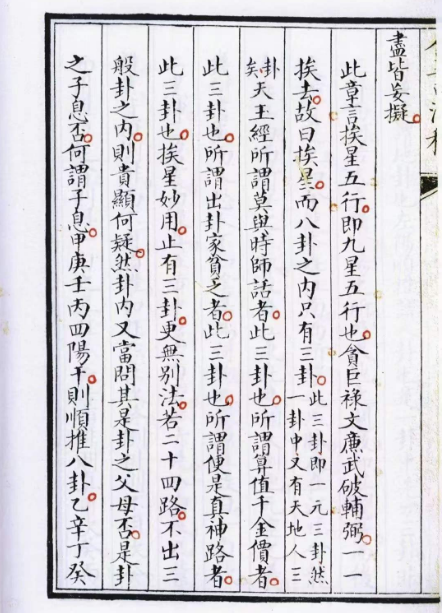 盡皆妄擬
此章言挨星五行即九星五行也貪巨祿文廉武破輔弼一一
挨去故曰挨星而八卦之内只有三卦此三卦即一元三卦然一卦中又有天地人三
卦矣天玉經所謂莫與時師話者此三卦也所謂算值千金價者
此三卦也所謂出卦家貧乏者此三卦也所謂便是真神路者
此三卦也挨星妙用止有三卦更無別法若二十四路不出三
般卦之内則貴顯何疑然卦内又當問其是卦之父母否是卦
之子息否何謂子息甲庚壬丙四陽干則順推八卦乙辛丁癸